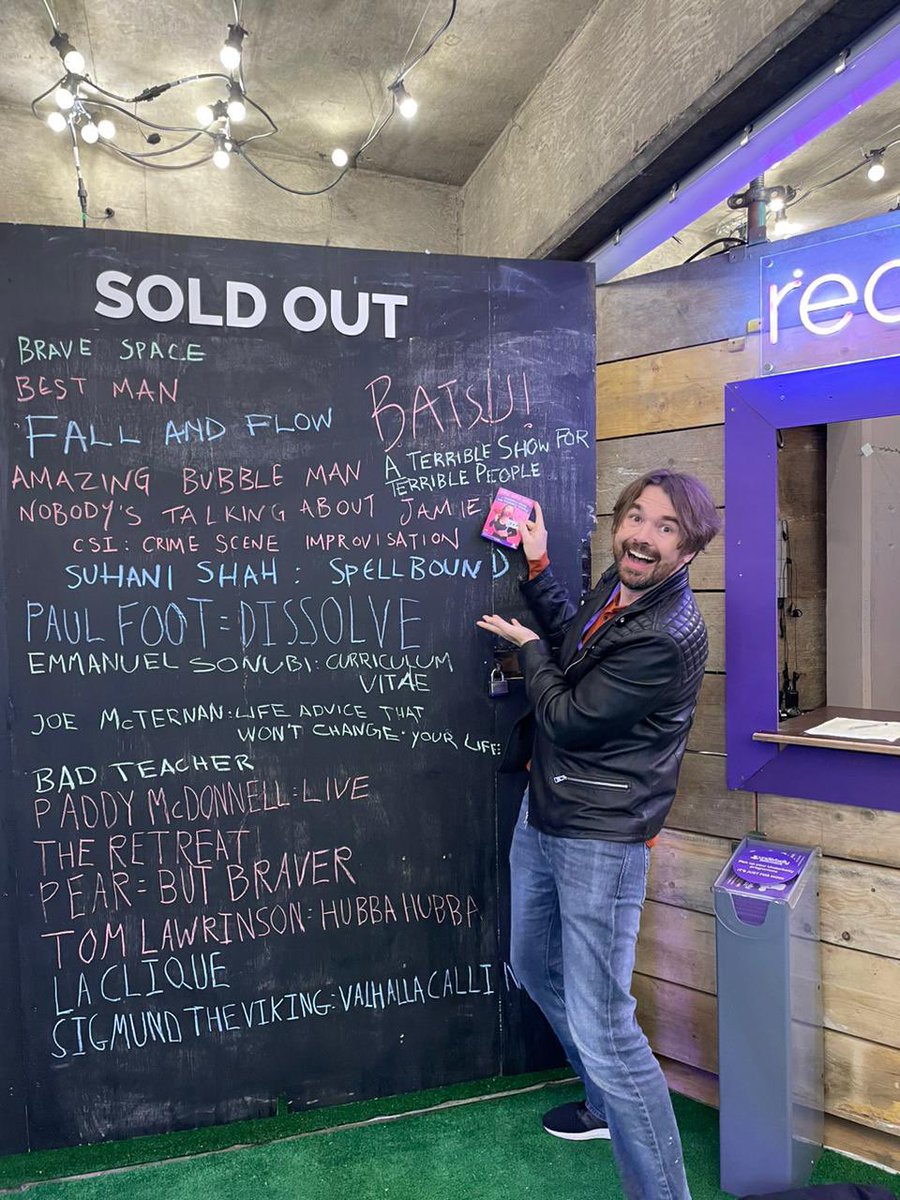 SOLD OUT
BRAVE SPACE
BEST MAN
FALL AND FLOW
AMAZING BUBBLE MAN
NOBODY'S TALKING ABOUT JAMIE
CSI: CRIME SCENE IMPROVISATION
SUHANI SHAH: SPELLBOUND
PAUL FOOT=DISSOLVE
EMMANUEL SONUBI: CURRICULUM
VITAE
JOE McTERNAN: LIFE ADVICE THAT
WON'T CHANGE YOUR LIFE
BAD TEACHER
PADDY McDONNELL: LIVE
THE RETREAT
PEAR= BUT BRAVER
TOM LAWRINSON: HUBBA HUBBA
LA CLIQUE
SIGMUND THE VIKING: VALHALLA CALLIN
BATSU!
A TERRIBLE SHOW FOR
TERRIBLE PEOPLE
red